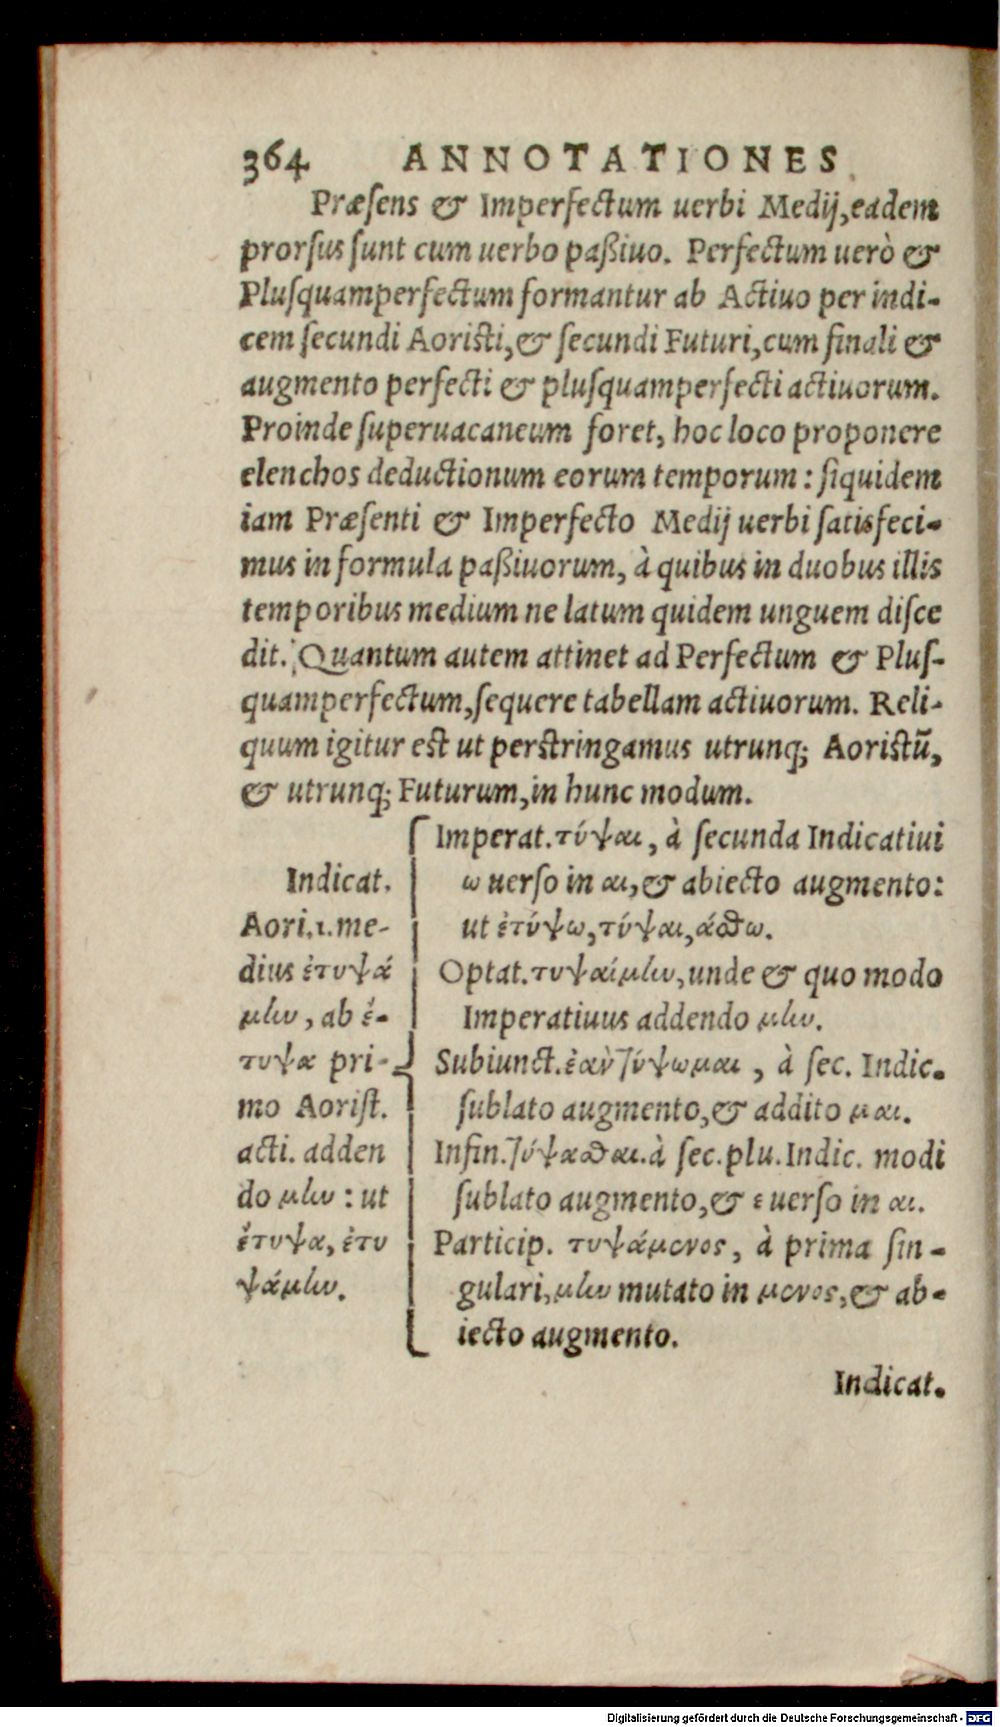 364 ANNOTATIONES
Præsens & Imperfectum uerbi Medij, eadem
prorsus sunt cum uerbo paßiuo. Perfectum uerò &
Plusquamperfectum formantur ab Actiuo per indi-
cem secundi Aoristi, & secundi Futuri, cum finali &
augmento perfecti & plusquamperfecti actiuorum.
Proinde superuacaneum foret, hoc loco proponere
elenchos deductionum eorum temporum: siquidem
iam Præsenti & Imperfecto Medij uerbi satisfeci-
mus in formula paßiuorum, à quibus in duobus illis
temporibus medium ne latum quidem unguem disce
dit. Quantum autem attinet ad Perfectum & Plus-
quamperfectum, sequere tabellam actiuorum. Reli-
quum igitur est ut perstringamus utrunq; Aoristū,
& utrunq; Futurum, in hunc modum.
Indicat.
Aori.1. me-
dius ἐτυψά
μην, ab ἔ-
τυψα pri-
mo Aorist.
acti. adden
do μην: ut
ἔτυψα, ἐτυ
ψάμην.
Imperat. τύψαι, à secunda Indicatiui
ω uerso in αι, & abiecto augmento:
ut ἐτύψω, τύψαι, άσθω.
Optat. τυψαίμην, unde & quo modo
Imperatiuus addendo μην.
Subiunct. ἐὰν τύψωμαι, à sec. Indic.
sublato augmento, & addito μαι.
Infin. τύψασθαι. à sec. plu. Indic. modi
sublato augmento, & ε uerso in αι.
Particip. τυψάμενος, à prima sin-
gulari, μην mutato in μενος, & ab-
iecto augmento.
Indicat.
Digitalisierung gefördert durch die Deutsche Forschungsgemeinschaft - DFG